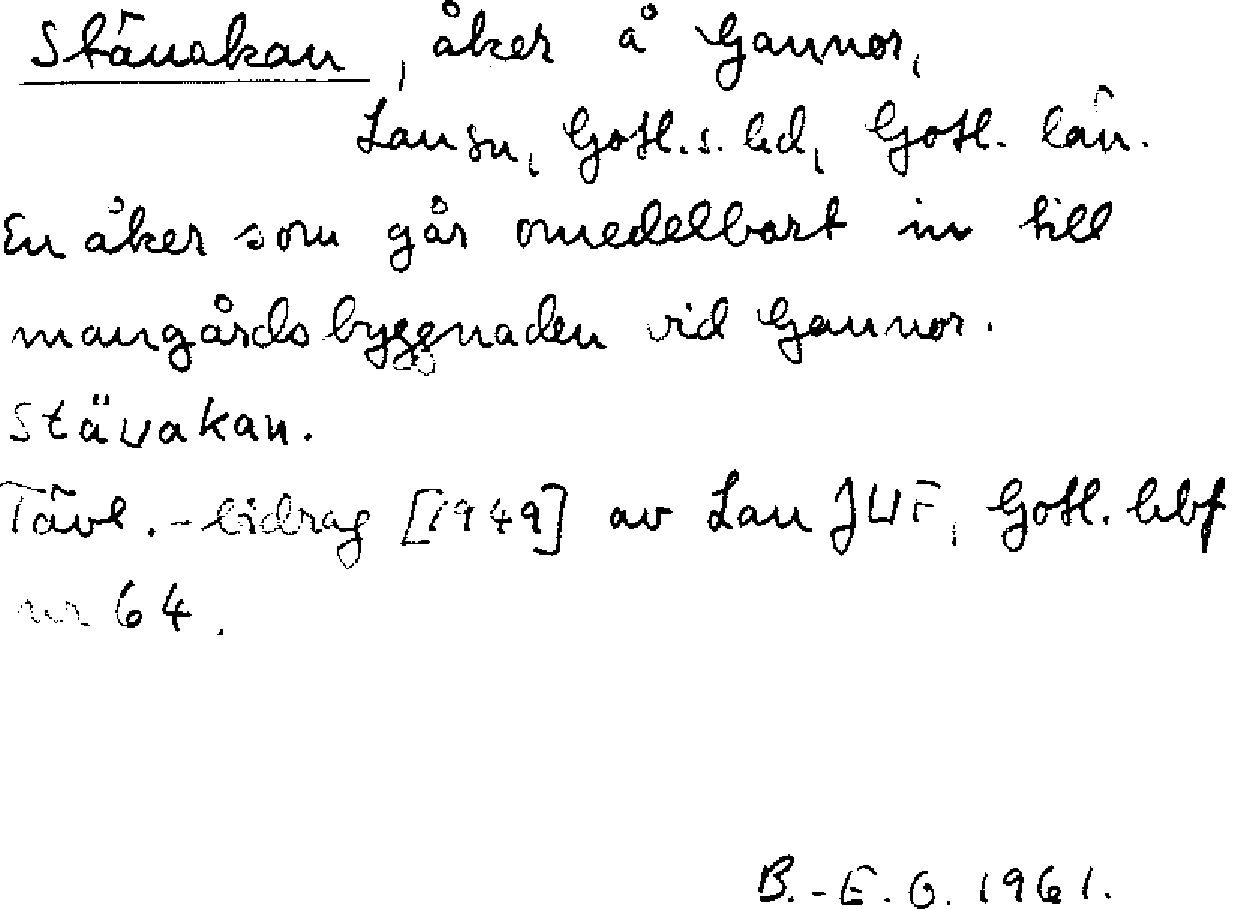 Stävakan, åker å Gannor,
Lau sn, Gotl. s. hd, Gotl. län.
En åker som går omedelbart in till
mangårdsbyggnaden vid Gannor.
Stävakan.
Tävl.-bidrag [1949] av Lau JUF, Gotl. hbf
nr 64.
B.-E. O. 1961.